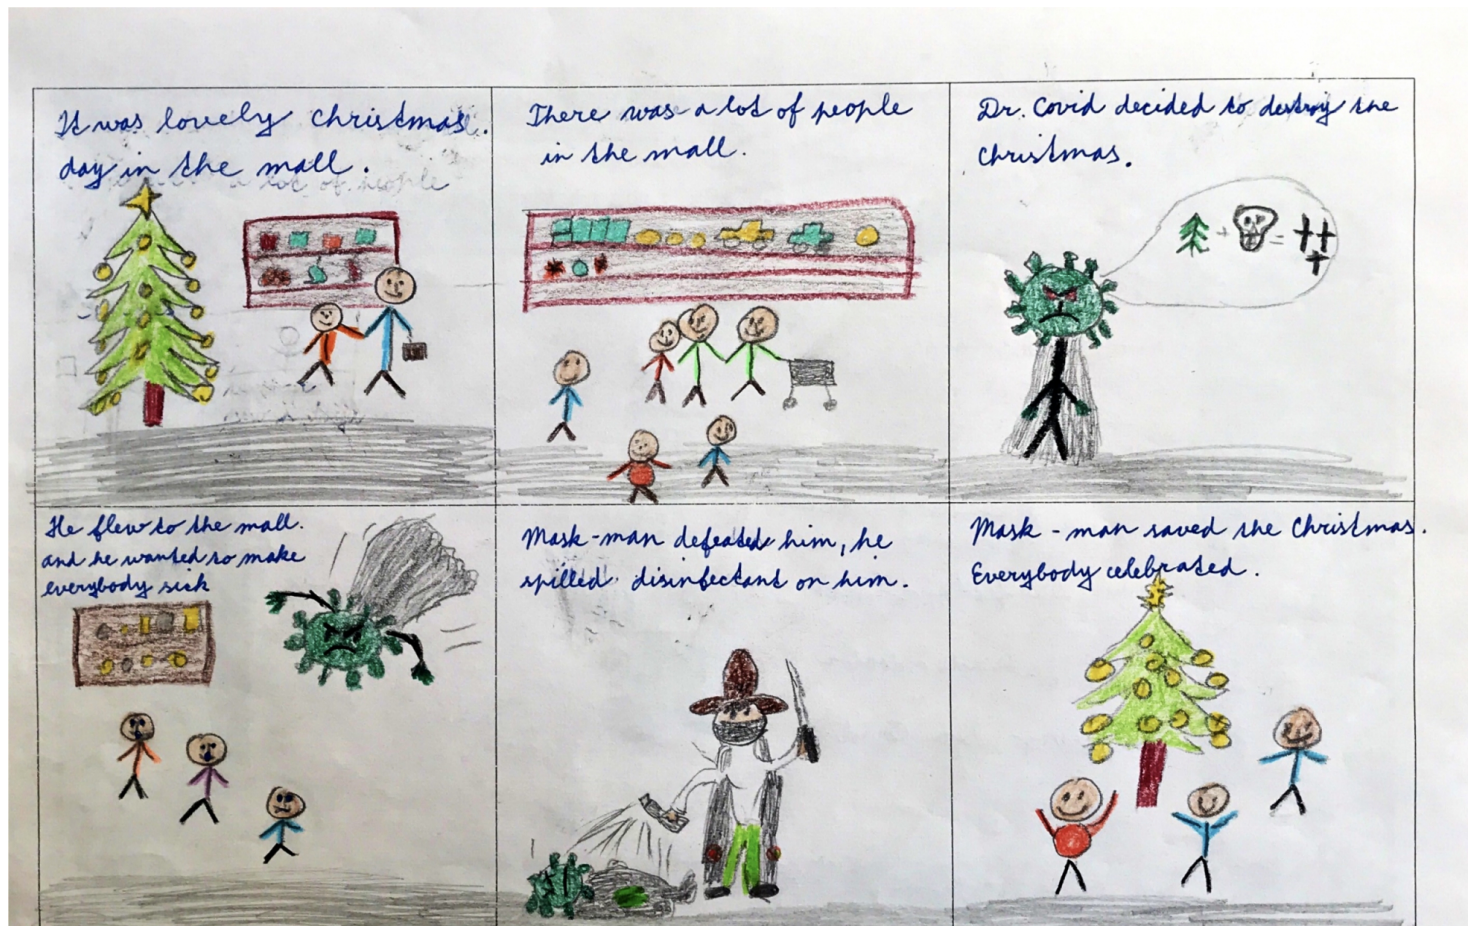 It was lovely Christmas.
day in the mall.
There was a lot of people
in the mall.
Dr. Covid decided to destroy the
Christmas.
He flew to the mall.
and he wanted to make
everybody sick
Mask-man defeated him, he
spilled disinfectant on him.
Mask-man saved the Christmas.
Everybody celebrated.